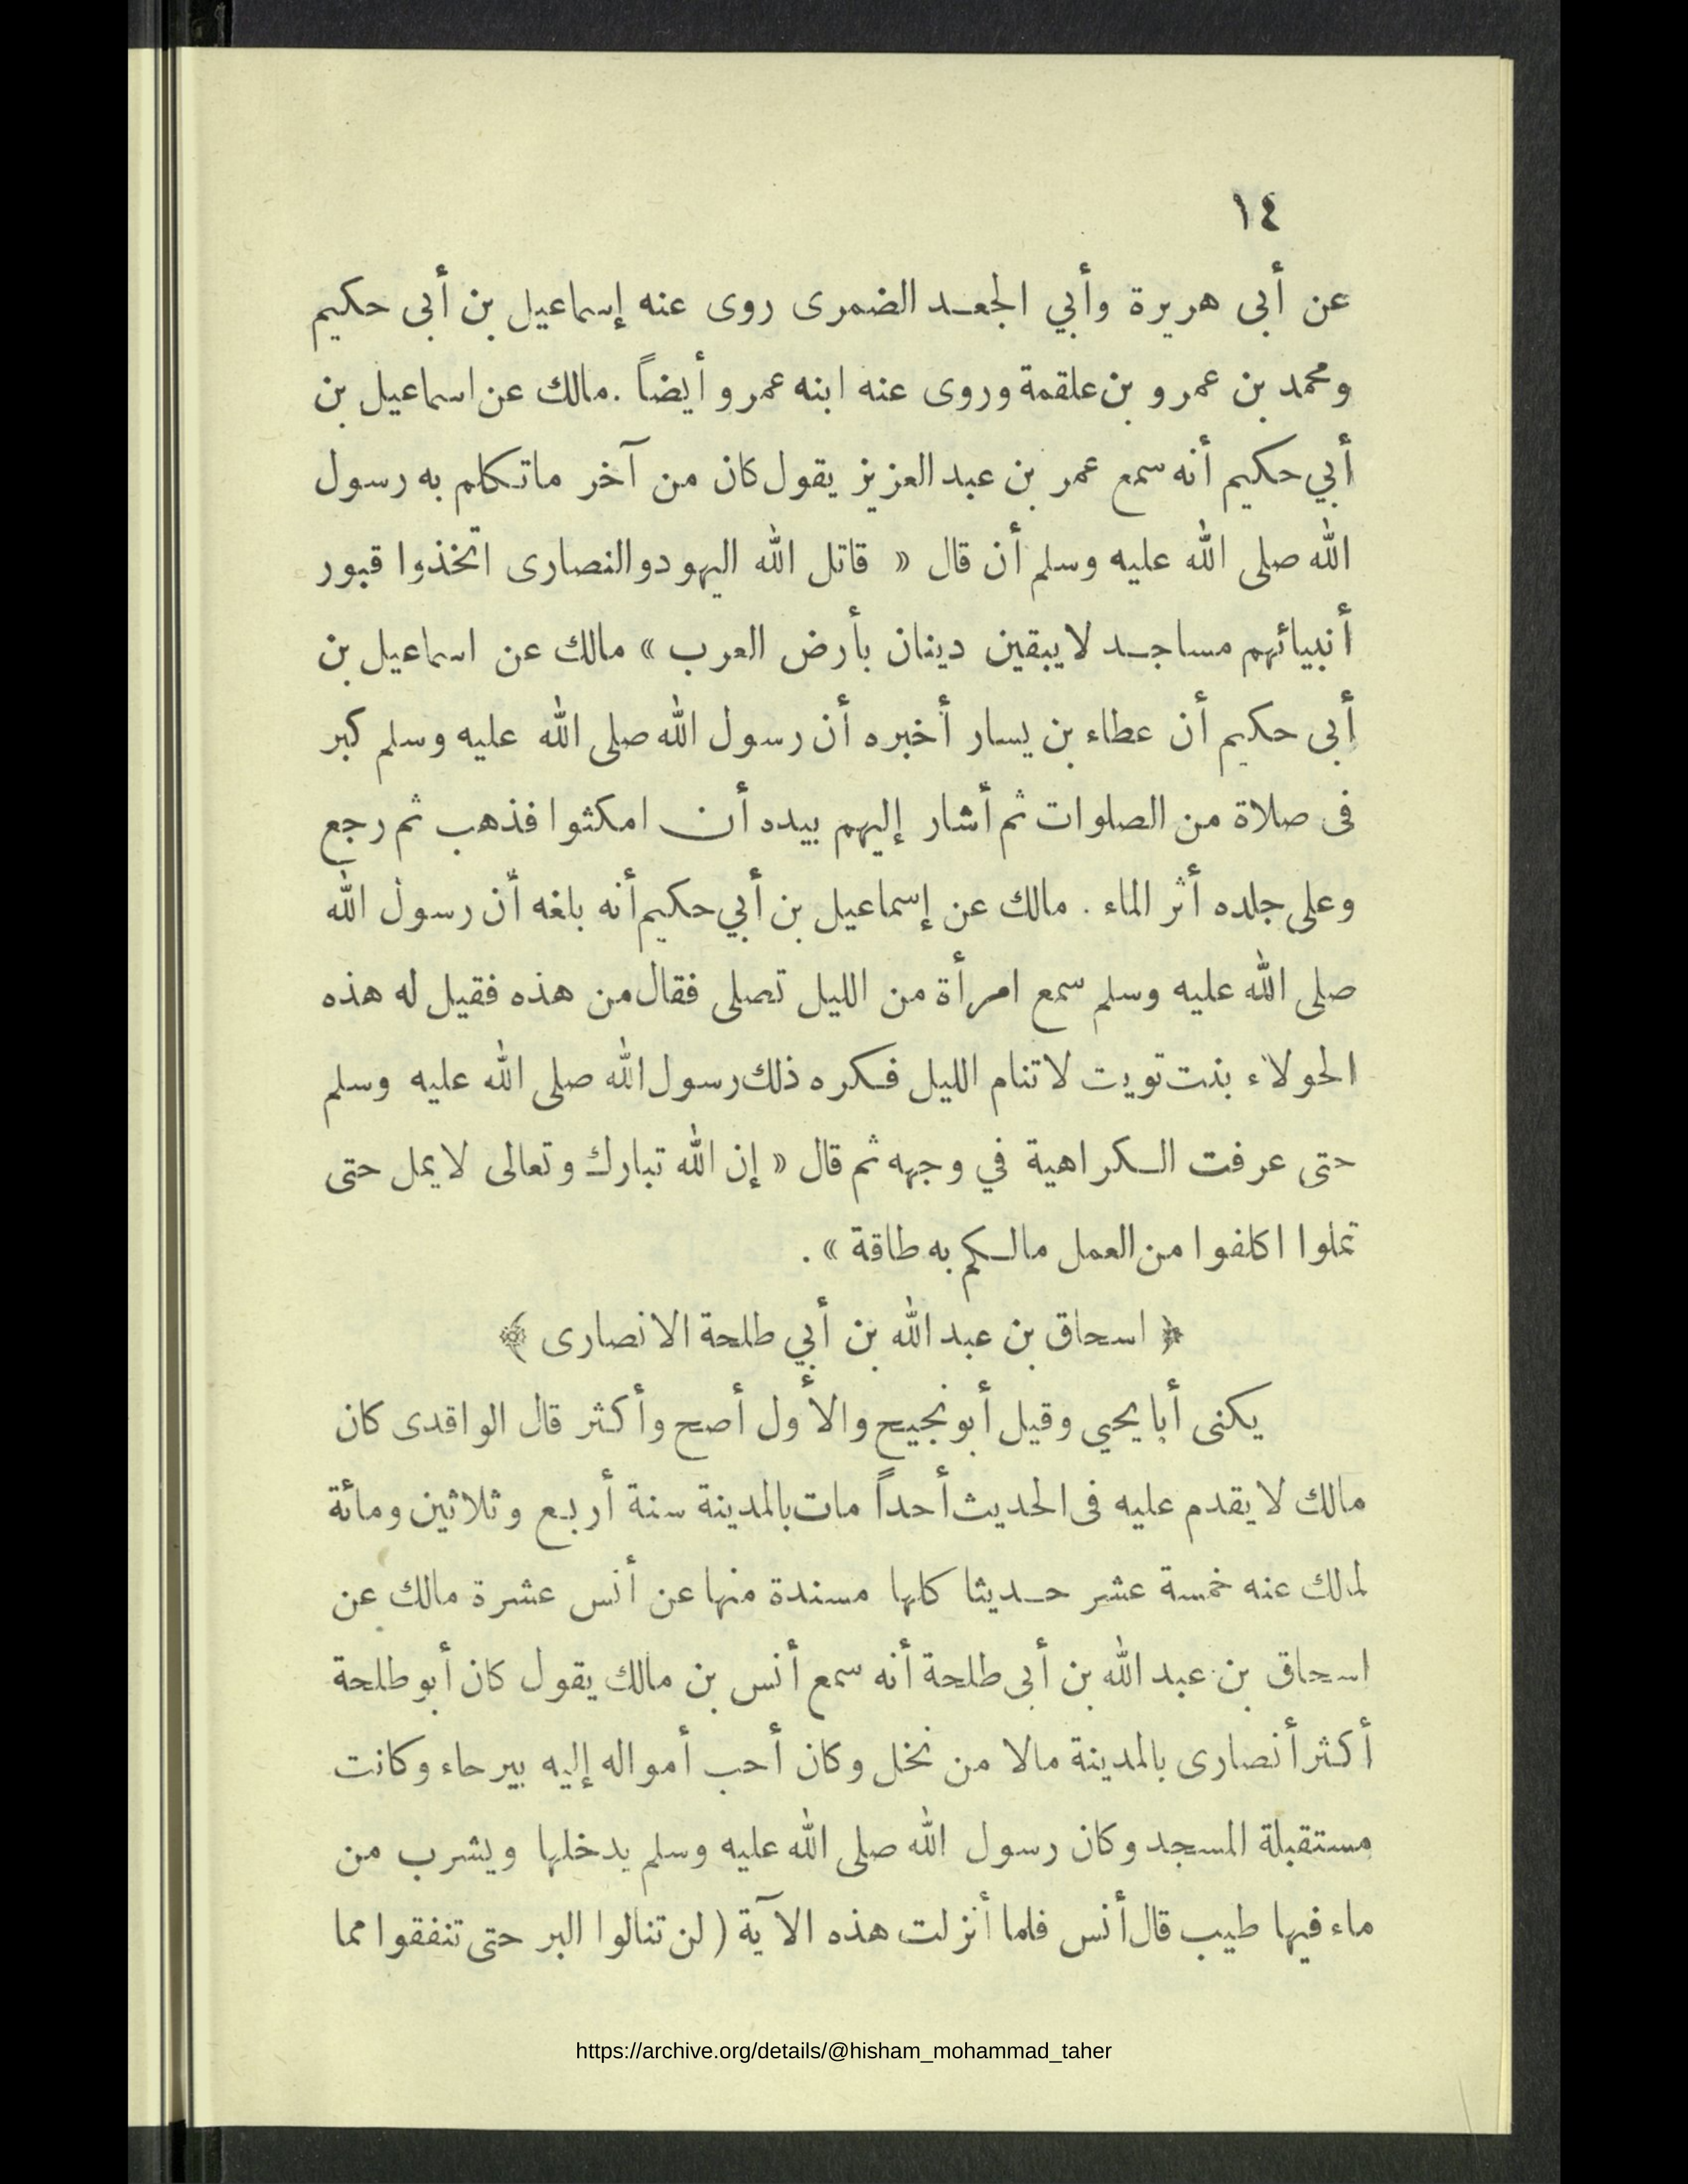 ١٤
عن أبى هريرة وأبي الجعد الضمرى روى عنه إسماعيل بن أبى حكيم
ومحمد بن عمرو بن علقمة وروى عنه ابنه عمرو أيضاً . مالك عن اسماعيل بن
أبي حكيم أنه سمع عمر بن عبد العزيز يقول كان من آخر ماتكلم به رسول
الله صلى الله عليه وسلم أن قال « قاتل الله اليهود والنصارى اتخذوا قبور
أنبيائهم مساجد لا يبقين دينان بأرض العرب » مالك عن اسماعيل بن
أبى حكيم أن عطاء بن يسار أخبره أن رسول الله صلى الله عليه وسلم كبر
فى صلاة من الصلوات ثم أشار إليهم بيده أن امكثوا فذهب ثم رجع
وعلى جلده أثر الماء . مالك عن إسماعيل بن أبي حكيم أنه بلغه أن رسول الله
صلى الله عليه وسلم سمع امرأة من الليل تصلى فقال من هذه فقيل له هذه
الحولاء بنت تويت لا تنام الليل فكره ذلك رسول الله صلى الله عليه وسلم
حتى عرفت الكراهية في وجهه ثم قال « إن الله تبارك وتعالى لا يمل حتى
تملوا اكلفوا من العمل مالكم به طاقة » .
﴿ اسحاق بن عبد الله بن أبي طلحة الانصارى ﴾
يكنى أبا يحيي وقيل أبو نجيح والأول أصح وأكثر قال الواقدى كان
مالك لا يقدم عليه فى الحديث أحداً مات بالمدينة سنة أربع وثلاثين ومائة
لمالك عنه خمسة عشر حديثا كلها مسندة منها عن أنس عشرة مالك عن
اسحاق بن عبد الله بن أبى طلحة أنه سمع أنس بن مالك يقول كان أبو طلحة
أكثر أنصارى بالمدينة مالا من نخل وكان أحب أمواله إليه بيرحاء وكانت
مستقبلة المسجد وكان رسول الله صلى الله عليه وسلم يدخلها ويشرب من
ماء فيها طيب قال أنس فلما أنزلت هذه الآية ( لن تنالوا البر حتى تنفقوا مما
https://archive.org/details/@hisham_mohammad_taher